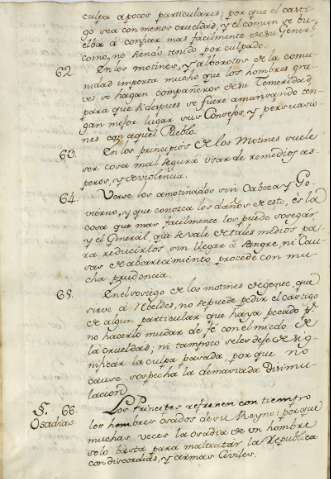 culpa a pocos particulares; por que el casti-
go sea con menos crueldad, y el comun se bu-
elba à confiar mas facilmente de su Gener.
como, no siendo tenido por culpado.
62. En los motines, y alborotos de la comu-
nidad importa mucho que los hombres gra-
ves se hagan compañeros de su temeridad
para que despues se fuere amansando ten-
gan mejor lugar sus Consejos, y persuasio-
nes con aquel Pueblo.
63. En los principios de los Motines suele
ser cosa mal segura usar de remedios as-
peros, y de violencia.
64. Verse los amotinados sin Cabeza y Go-
vierno, y que conozca los daños de esto, es la
cosa que mas facilmente los puede sosegar
y el General que se vale de tales medios pa-
ra reducirlos sin llegar à Sangre, ni Cau-
sar de aborrecimiento procede con mu-
cha prudencia.
65. En el sosiego de los motines de gente que
sirve à Rebeldes, no se puede pedir el castigo
de algun particular que haya pecado p.r
no hacerlo mudar de fe con el miedo de
la crueldad, ni tampoco se les deje de sig-
nificar la culpa pasada, por que no
cause sospecha la demasiada Disimu-
lacion.
§. 66 Los Principes refrenen con tiempo
Osadias los hombres osados de su Reyno; porque
muchas veces la osadia de un hombre
solo basta para maltratar la Republica
con discordias, y armas Civiles.